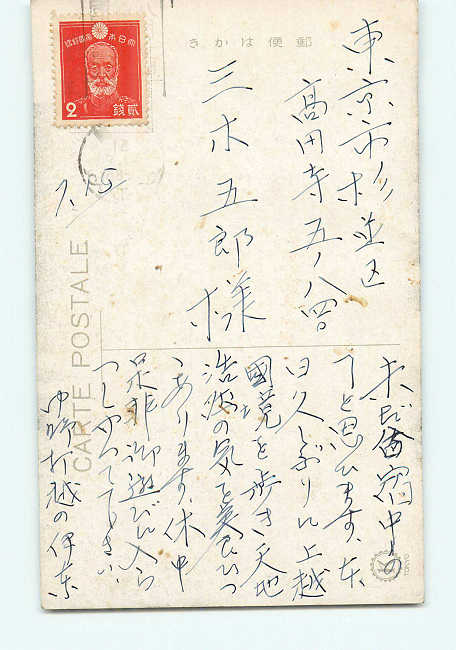 郵便はかき
大日本帝國郵便
2
貳銭
東京市杉並区
高円寺五ノ八四
三木五郎様
7.15
CARTE POSTALE
中の
と思ひます、
日久しぶりに上越
国境を歩き天地
浩然の気を養ひつゝ
あります、休中
是非御遊びに入ら
つしやつて下さい、
中野打越の伊東
TOKYO